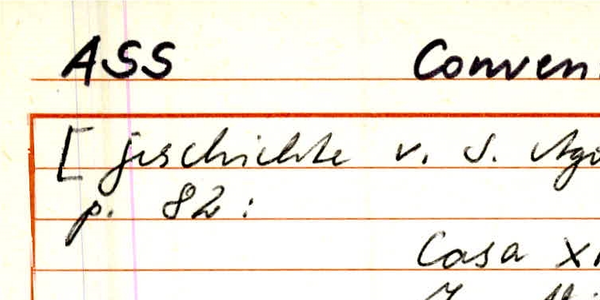 ASS Conven
[ Geschichte v. S. Ag
p. 82:
Casa X